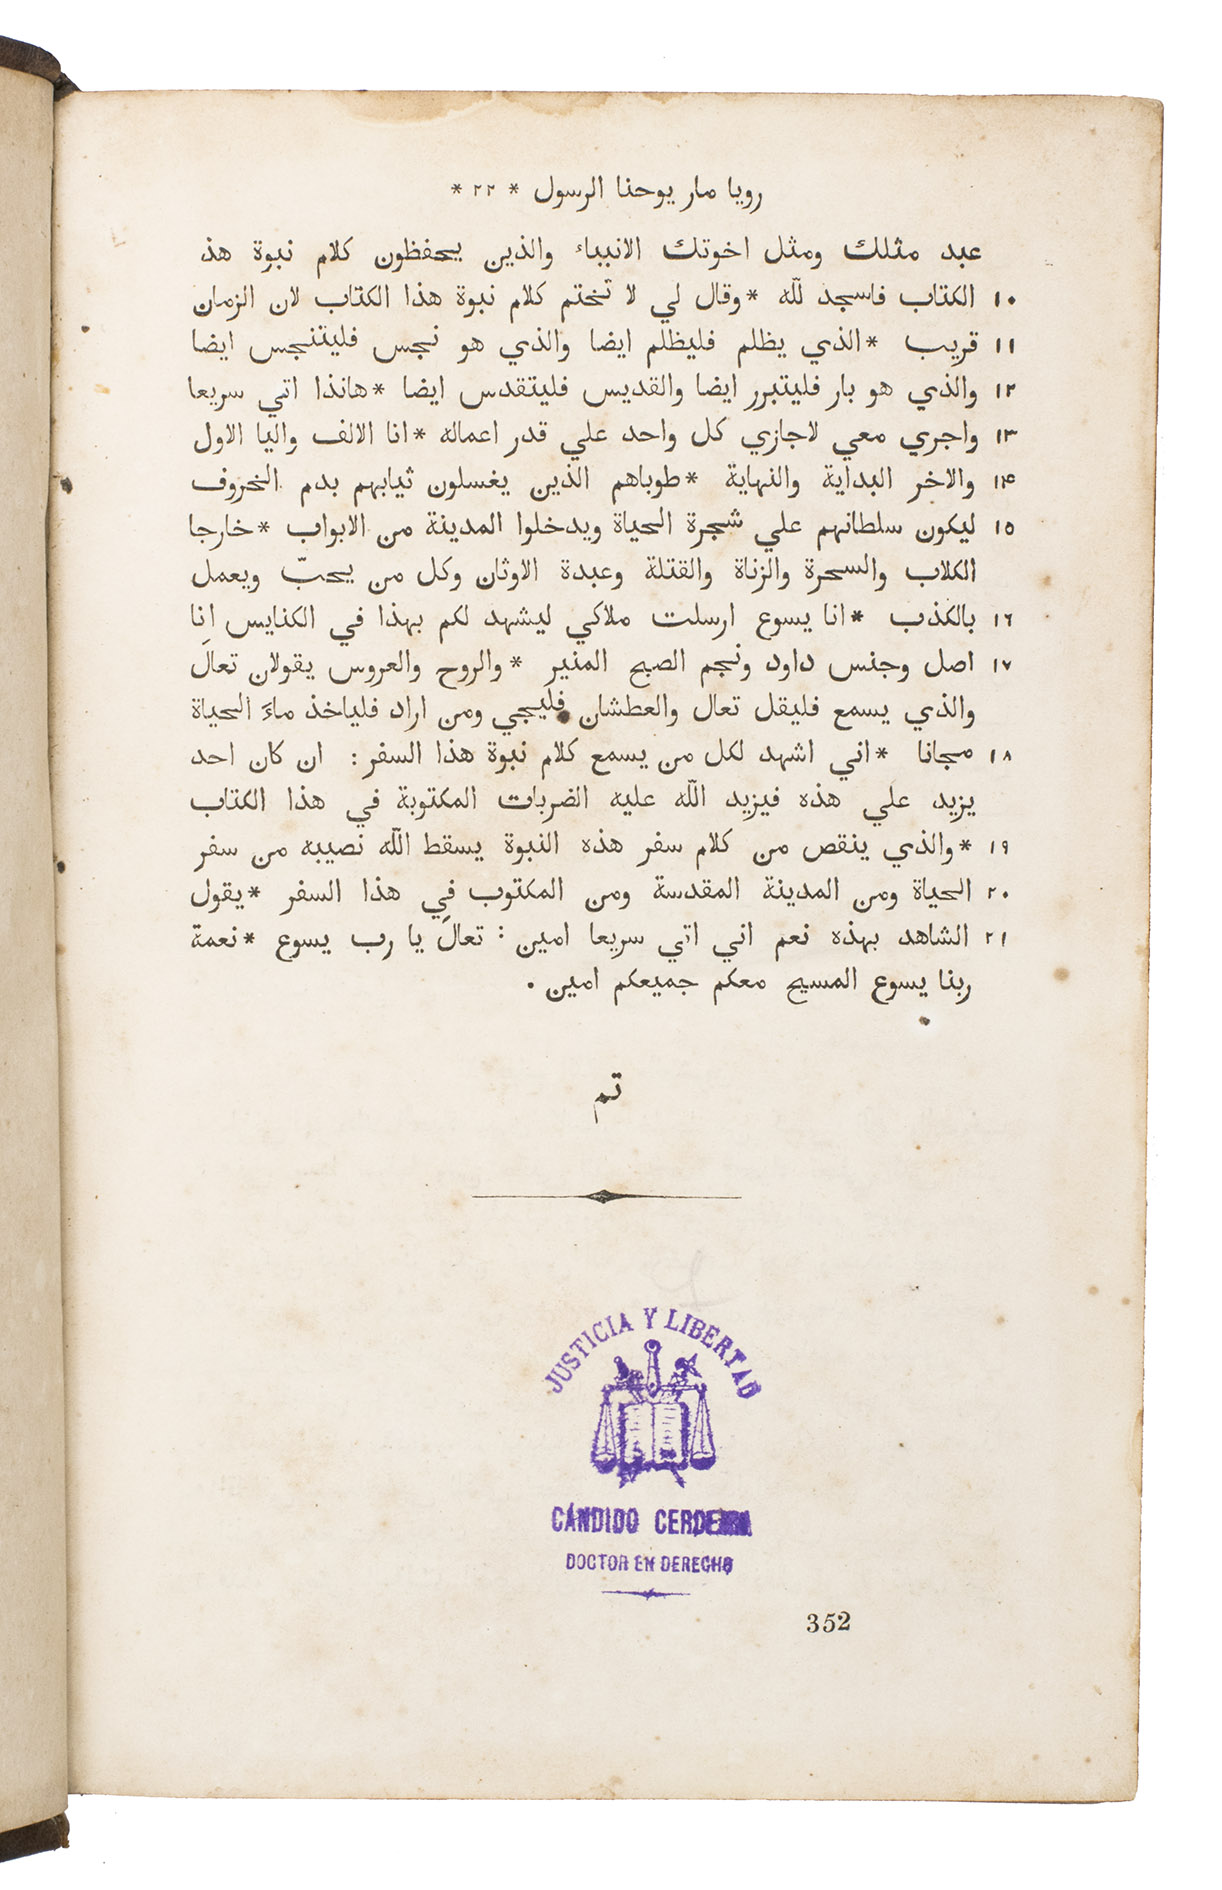 رويا مار يوحنا الرسول * ٢٢ *
عبد مثلك ومثل اخوتك الانبياء والذين يحفظون كلام نبوة هذ
١٠ الكتاب فاسجد للّه *وقال لي لا تختم كلام نبوة هذا الكتاب لان الزمان
١١ قريب *الذي يظلم فليظلم ايضا والذي هو نجس فليتنجس ايضا
١٢ والذي هو بار فليتبرر ايضا والقديس فليتقدس ايضا *هانذا اتي سريعا
١٣ واجري معي لاجازي كل واحد علي قدر اعماله *انا الالف واليا الاول
١٤ والاخر البداية والنهاية *طوباهم الذين يغسلون ثيابهم بدم الخروف
١٥ ليكون سلطانهم علي شجرة الحياة ويدخلوا المدينة من الابواب *خارجا
الكلاب والسحرة والزناة والقتلة وعبدة الاوثان وكل من يحبّ ويعمل
١٦ بالكذب *انا يسوع ارسلت ملاكي ليشهد لكم بهذا في الكنايس انا
١٧ اصل وجنس داود ونجم الصبح المنير *والروح والعروس يقولان تعالَ
والذي يسمع فليقل تعال والعطشان فليجي ومن اراد فلياخذ ماءَ الحياة
١٨ مجانا *اني اشهد لكل من يسمع كلام نبوة هذا السفر: ان كان احد
يزيد علي هذه فيزيد اللّه عليه الضربات المكتوبة في هذا الكتاب
١٩ *والذي ينقص من كلام سفر هذه النبوة يسقط اللّه نصيبه من سفر
٢٠ الحياة ومن المدينة المقدسة ومن المكتوب في هذا السفر *يقول
٢١ الشاهد بهذه نعم اني اتي سريعا امين: تعالَ يا رب يسوع *نعمة
ربنا يسوع المسيح معكم جميعكم امين.
تم
JUSTICIA Y LIBERTAD
CÁNDIDO
DOCTOR EN DERECHO
352